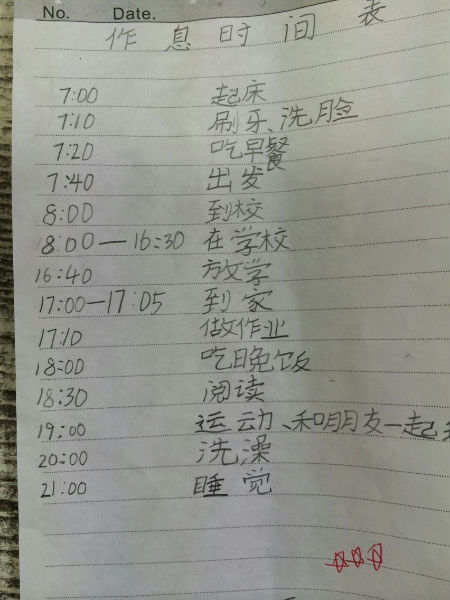 No. Date.
作息时间表
7:00 起床
7:10 刷牙、洗脸
7:20 吃早餐
7:40 出发
8:00 到校
8:00—16:30 在学校
16:40 放学
17:00—17:05 到家
17:10 做作业
18:00 吃晚饭
18:30 阅读
19:00 运动、和朋友一起
20:00 洗澡
21:00 睡觉